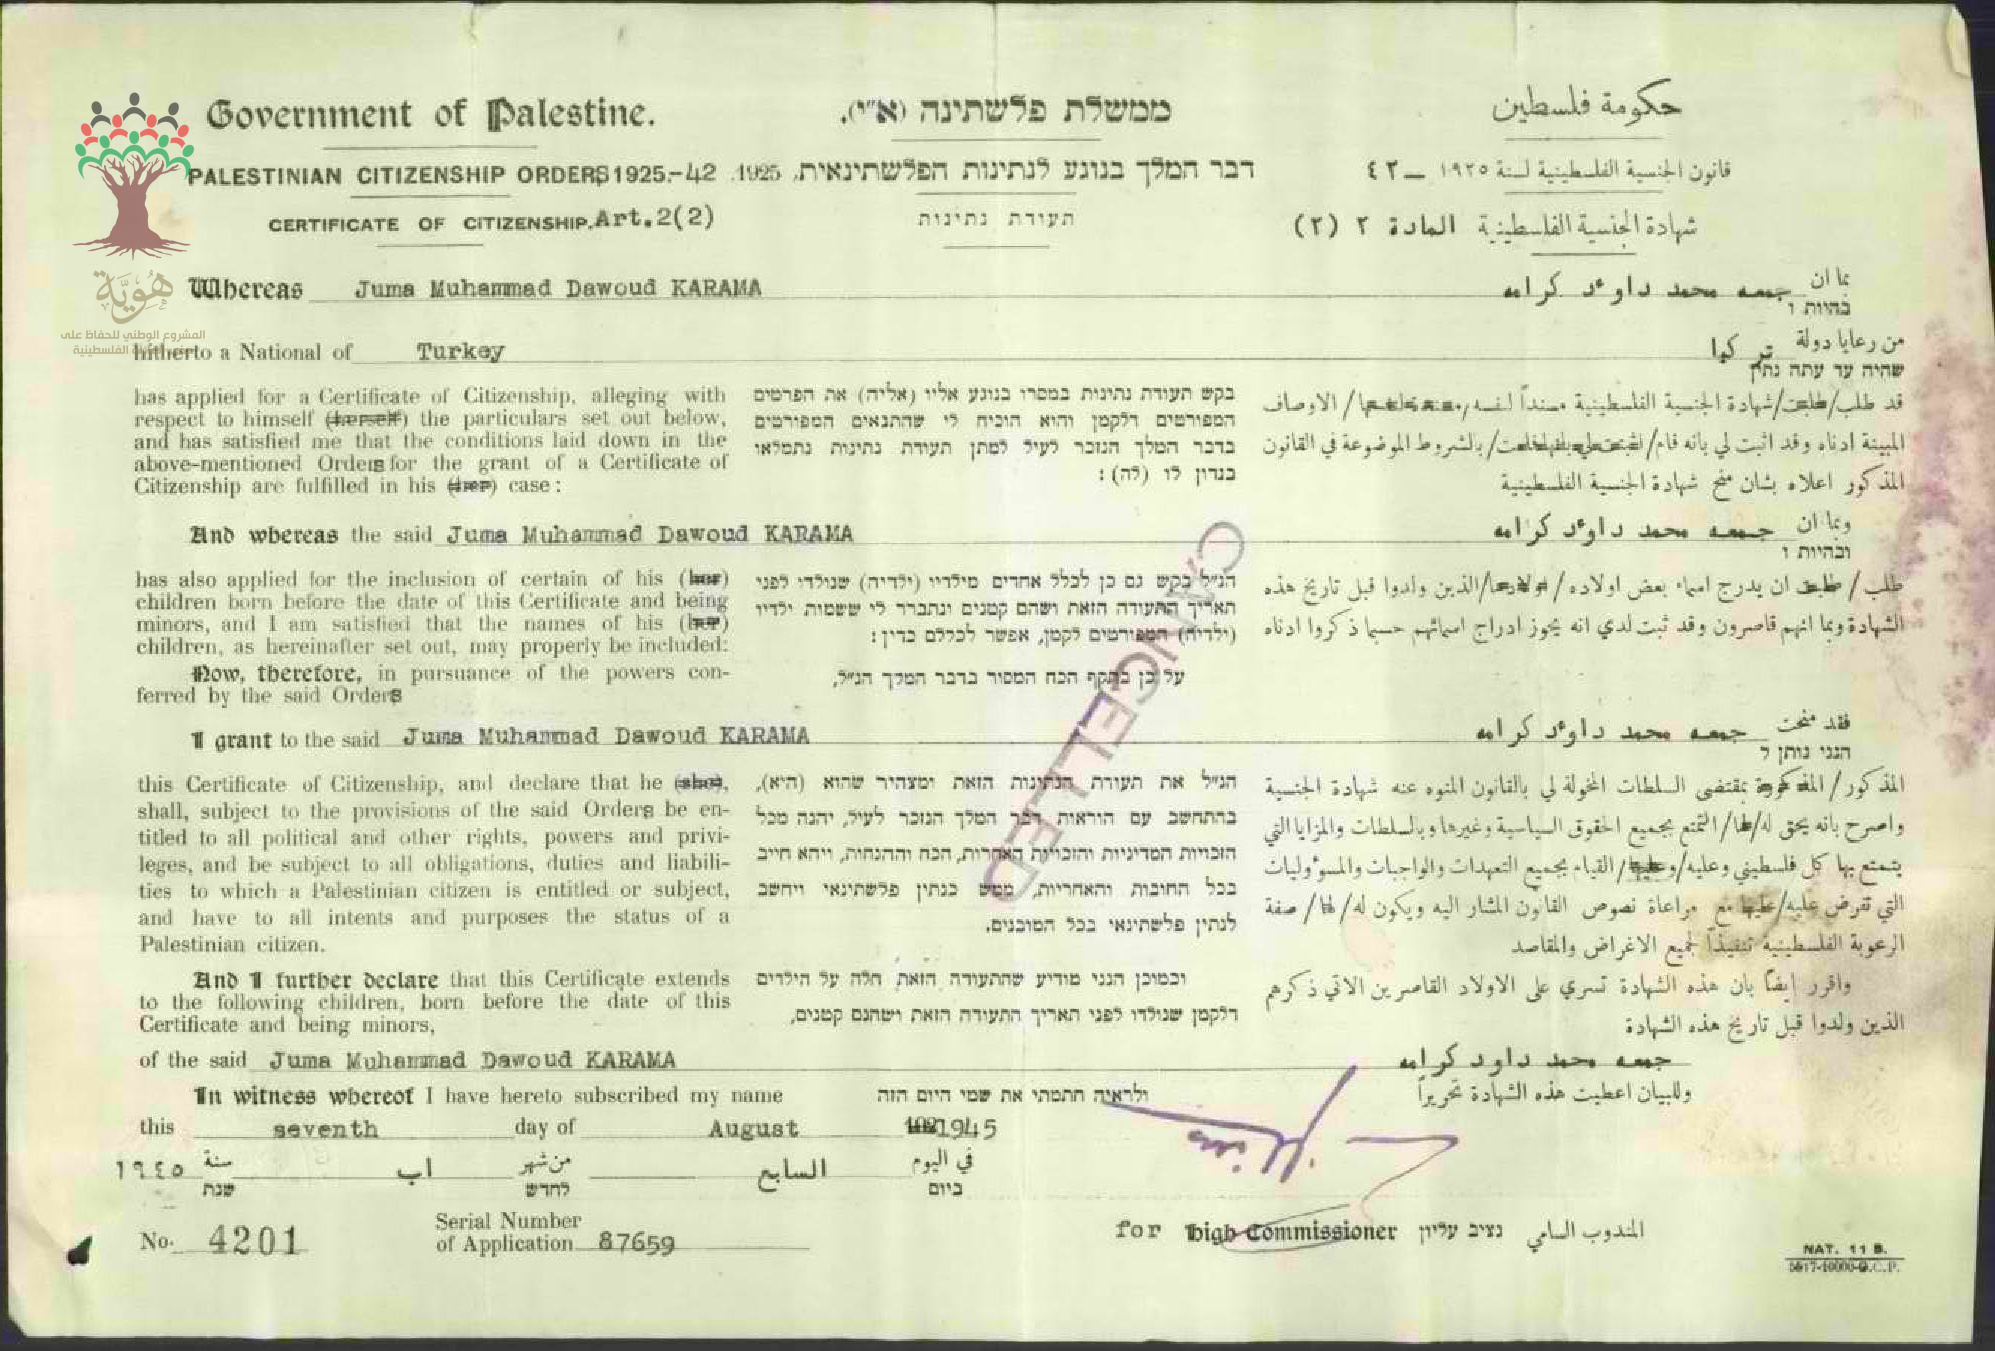 Government of Palestine.
ממשלת פלשתינה (א״י).
حكومة فلسطين
PALESTINIAN CITIZENSHIP ORDERS 1925.-42
דבר המלך בנוגע לנתינות הפלשתינאית, 1925.
قانون الجنسية الفلسطينية لسنة ١٩٢٥ — ٤٢
CERTIFICATE OF CITIZENSHIP. Art.2(2)
תעודת נתינות
شهادة الجنسية الفلسطينية المادة ٢ (٢)
هويّة
المشروع الوطني للحفاظ على
الفلسطينية
Whereas Juma Muhammad Dawoud KARAMA
بما ان جمعه محمد داوءد كرامه
בהיות ו
hitherto a National of Turkey
من رعايا دولة تركيا
שהיה עד עתה נתין
has applied for a Certificate of Citizenship, alleging with
respect to himself (herself) the particulars set out below,
and has satisfied me that the conditions laid down in the
above-mentioned Orders for the grant of a Certificate of
Citizenship are fulfilled in his (her) case:
בקש תעודת נתינות במסרו בנוגע אליו (אליה) את הפרטים
המפורטים דלקמן והוא הוכיח לי שהתנאים המפורטים
בדבר המלך הנזכר לעיל למתן תעודת נתינות נתמלאו
בנדון לו (לה):
قد طلب/طلبت/شهادة الجنسية الفلسطينية مسنداً لنفسه الاوصاف
المبينة ادناه وقد اثبت لي بانه قام بالشروط الموضوعة في القانون
المذكور اعلاه بشان منح شهادة الجنسية الفلسطينية
And whereas the said Juma Muhammad Dawoud KARAMA
وبما ان جمعه محمد داوءد كرامه
ובהיות ו
has also applied for the inclusion of certain of his (her)
children born before the date of this Certificate and being
minors, and I am satisfied that the names of his (her)
children, as hereinafter set out, may properly be included:
Now, therefore, in pursuance of the powers con-
ferred by the said Orders
הנ״ל בקש גם כן לכלל אחדים מילדיו (ילדיה) שנולדו לפני
תאריך התעודה הזאת ושהם קטנים ונתברר לי ששמות ילדיו
(ילדיה) המפורטים לקמן, אפשר לכללם כדין:
על כן בתקף הכח המסור בדבר המלך הנ״ל,
طلب/طلبت ان يدرج اسماء بعض اولاده/اولادها/الذين ولدوا قبل تاريخ هذه
الشهادة وبما انهم قاصرون وقد ثبت لدي انه يجوز ادراج اسمائهم حسبما ذكروا ادناه
CANCELLED
I grant to the said Juma Muhammad Dawoud KARAMA
فقد منحت جمعه محمد داوءد كرامه
הנני נותן ל
this Certificate of Citizenship, and declare that he (she),
shall, subject to the provisions of the said Orders be en-
titled to all political and other rights, powers and privi-
leges, and be subject to all obligations, duties and liabili-
ties to which a Palestinian citizen is entitled or subject,
and have to all intents and purposes the status of a
Palestinian citizen.
הנ״ל את תעודת הנתינות הזאת ומצהיר שהוא (היא),
בהתחשב עם הוראות דבר המלך הנזכר לעיל, יהנה מכל
הזכויות המדיניות והזכויות האחרות, הכח וההנחות, ויהא חייב
בכל החובות והאחריות, ממש כנתין פלשתינאי ויחשב
לנתין פלשתינאי בכל המובנים.
المذكور/المذكورة بمقتضى السلطات المخولة لي بالقانون المنوه عنه شهادة الجنسية
واصرح بانه يحق له/لها/التمتع بجميع الحقوق السياسية وغيرها وبالسلطات والمزايا التي
يتمتع بها كل فلسطيني وعليه/وعليها/القيام بجميع التعهدات والواجبات والمسؤوليات
التي تفرض عليه/عليها مع مراعاة نصوص القانون المشار اليه ويكون له/لها/صفة
الرعوية الفلسطينية تنفيذاً لجميع الاغراض والمقاصد
And I further declare that this Certificate extends
to the following children, born before the date of this
Certificate and being minors,
וכמוכן הנני מודיע שהתעודה הזאת חלה על הילדים
דלקמן שנולדו לפני תאריך התעודה הזאת ושהנם קטנים,
واقرر ايضاً بان هذه الشهادة تسري على الاولاد القاصرين الاتي ذكرهم
الذين ولدوا قبل تاريخ هذه الشهادة
of the said Juma Muhammad Dawoud KARAMA
جمعه محمد داود كرامه
In witness whereof I have hereto subscribed my name
ולראיה חתמתי את שמי היום הזה
وللبيان اعطيت هذه الشهادة تحريراً
this seventh day of August 192 1945
في اليوم السابع من شهر اب سنة ١٩٤٥
ביום לחדש שנת
No. 4201
Serial Number
of Application 87659
for High Commissioner נציב עליון المندوب السامي
NAT. 11 B.